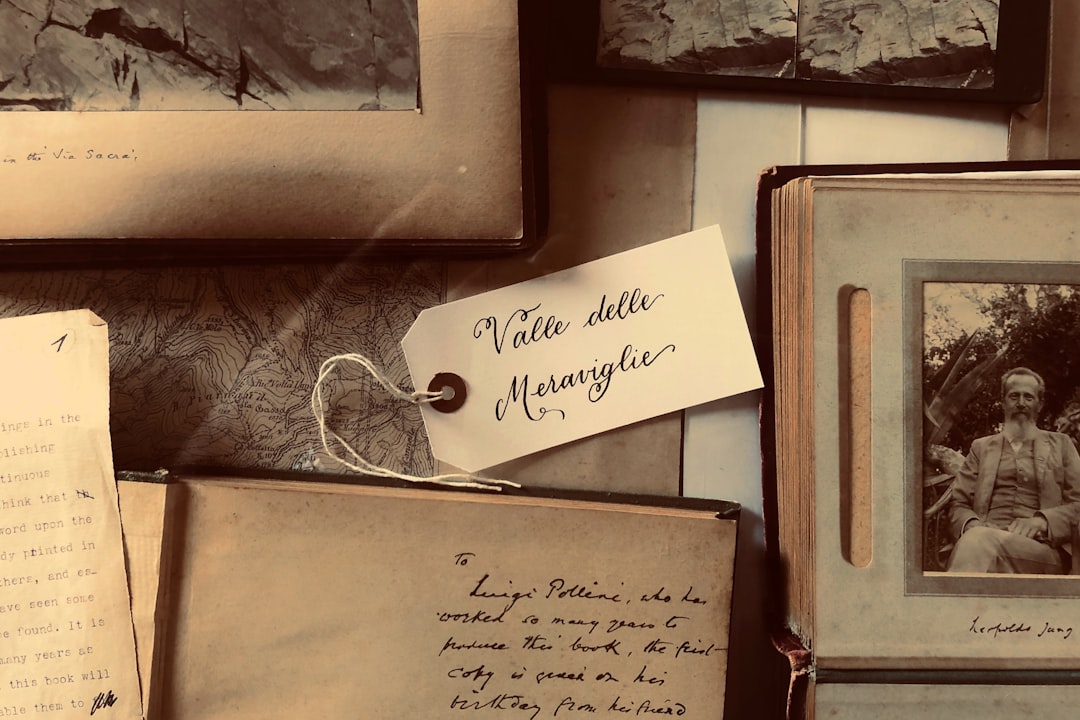 in the Via Sacra.
Valle delle
Meraviglie
1
ings in the
blishing
tinuous
hink that
word upon the
dy printed in
thers, and es-
ave seen some
e found. It is
many years as
this book will
able them to
To
Luigi Pollini, who has
worked so many years to
produce this book, the first
copy is given on his
birthday from his friend
Leopoldo Jung